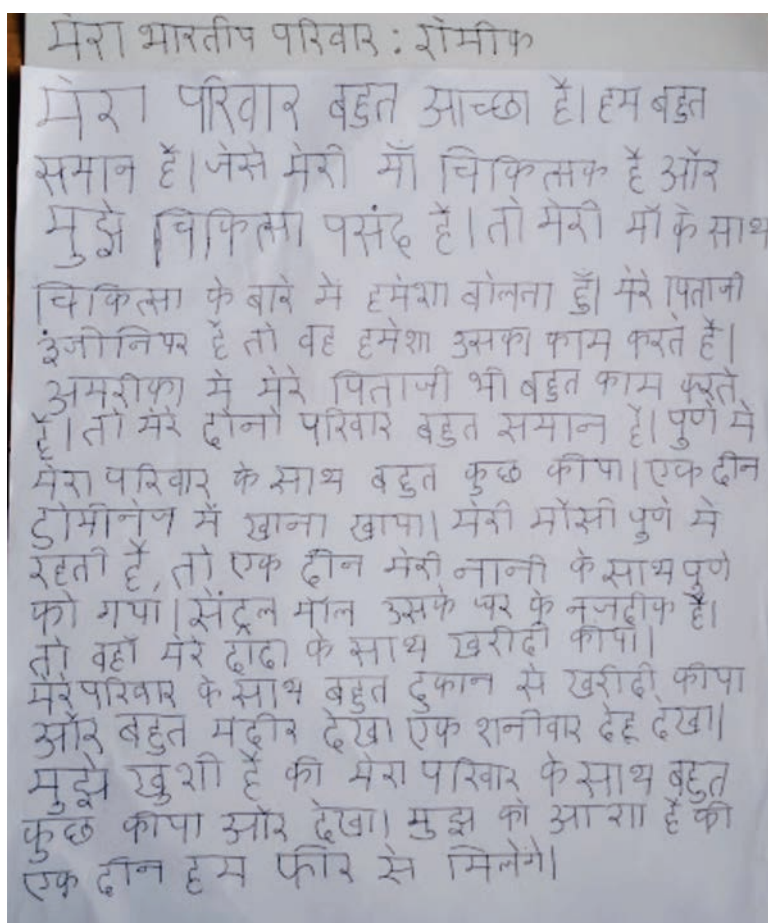 मेरा भारतीप परिवार : रोमीक
मेरा परिवार बहुत आच्छा है। हम बहुत
समान है। जेसे मेरी माँ चिकित्सक है और
मुझे चिकित्सा पसंद है। तो मेरी माँ के साथ
चिकित्सा के बारे में हमेशा बोलता हुँ। मेरे पिताजी
इंजीनिपर है तो वह हमेशा उसका काम करते है।
अमरीका मे मेरे पिताजी भी बहुत काम करते
है। तो मेरे दोनो परिवार बहुत समान है। पुणे मे
मेरा परिवार के साथ बहुत कुछ कीपा। एक दीन
डोमीनोज में खाना खापा। मेरी मौसी पुणे मे
रहती है, तो एक दीन मेरी नानी के साथ पुणे
को गपा। सेंट्रल मॉल उसके घर के नजदीक है।
तो वहाँ मेरे दादा के साथ खरीदी कीपा।
मेरे परिवार के साथ बहुत दुकान से खरीदी कीपा
और बहुत मदीर देखा एक शनीवार देहू देखा।
मुझे खुशी है की मेरा परिवार के साथ बहुत
कुछ कीपा और देखा। मुझ को आशा है की
एक दीन हम फीर से मिलेगे।